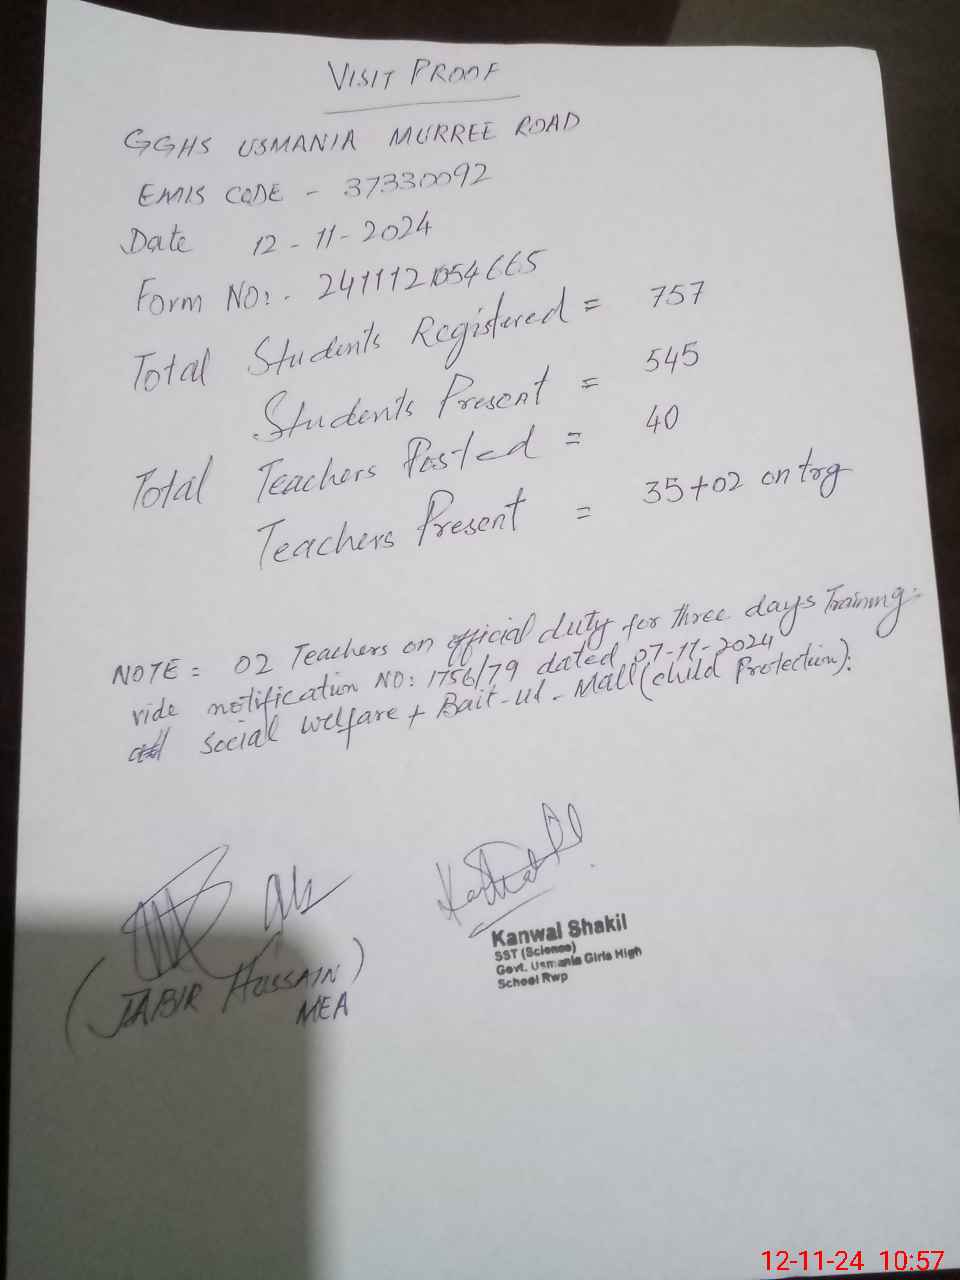 VISIT PROOF
GGHS USMANIA MURREE ROAD
EMIS CODE - 37330092
Date 12-11-2024
Form NO:- 2411121054665
Total Students Registered = 757
Students Present = 545
Total Teachers Posted = 40
Teachers Present = 35+02 on trg
NOTE = 02 Teachers on official duty for three days Training
vide notification NO: 1756/79 dated 07-11-2024
social welfare + Bait-ul-Mall (child Protection).
(JABIR HUSSAIN)
MEA
Kanwal Shakil
SST (Science)
Govt. Usmania Girls High
School Rwp
12-11-24 10:57